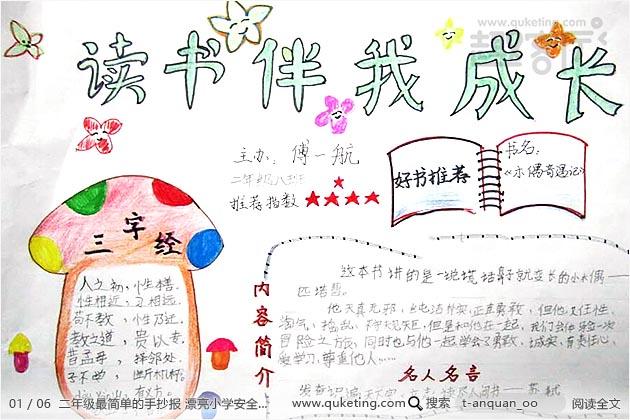 www.quketing.com
趣客听
读书伴我成长
主办:傅一航
二年级八班
推荐指数 ★★★★★
好书推荐
书名:
《木偶奇遇记》
三字经
人之初,性本善.
性相近,习相远.
苟不教,性乃迁.
教之道,贵以专.
昔孟母,择邻处.
子不学,断机杼.
内容简介
这本书讲的是一说谎话鼻子就变长的小木偶——
匹诺曹。
他天真无邪,
但他又任性,
淘气,
但是和他在一起,我们会体验一次
冒险之旅,同时也与他一起学会了勇敢,诚实,有责任心,
爱学习,尊重他人....
名人名言
01 / 06 二年级最简单的手抄报 漂亮小学安全...
www.quketing.com 搜索 t-anquan_oo 阅读全文